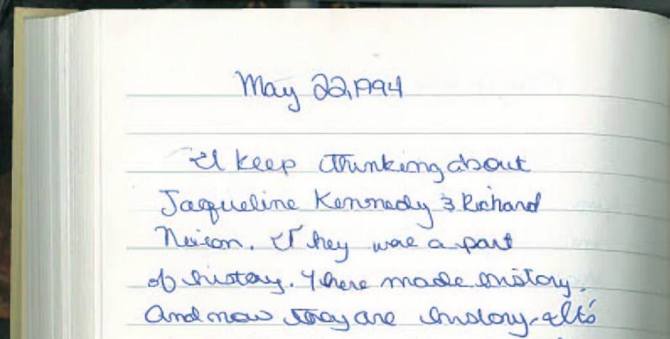 May 22, 1994
I keep thinking about
Jaqueline Kennedy & Richard
Nixon. They were a part
of history. made history.
And now they are history. It's